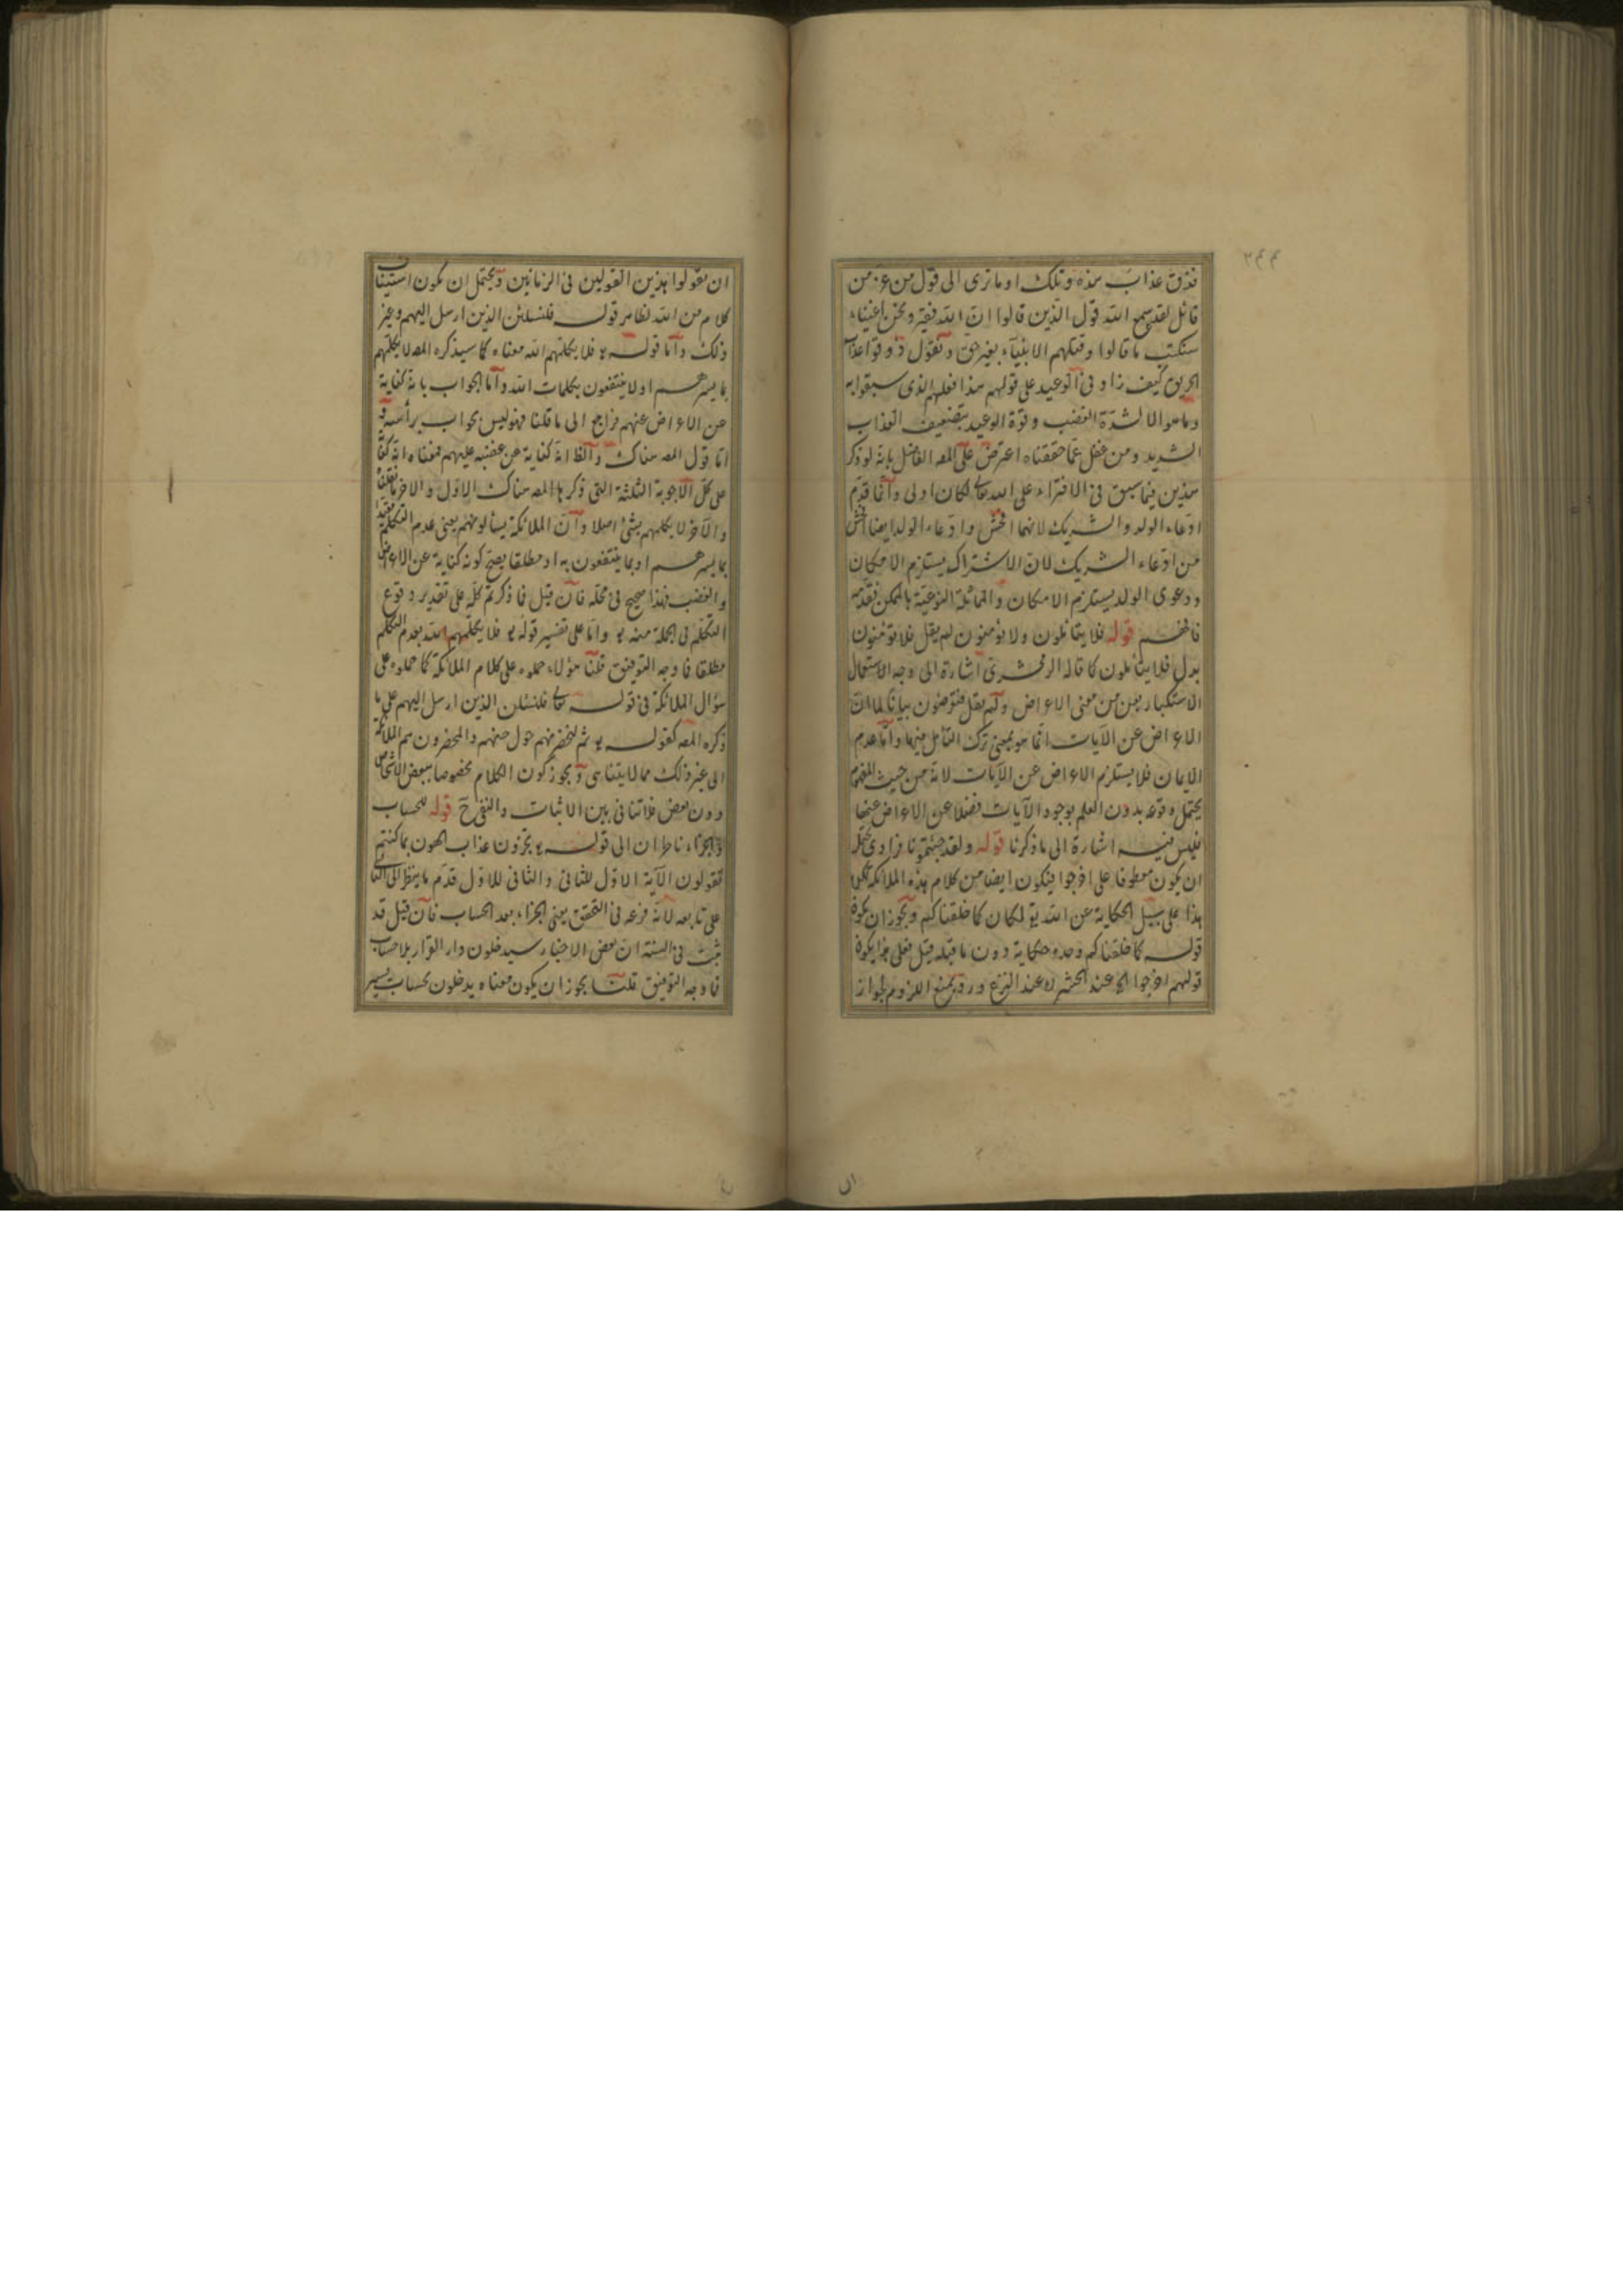 ٢٤٤
فذق عذاب هذه وتلك او ما ترى الى قول من عز من
قائل لقد سمع الله قول الذين قالوا ان الله فقير ونحن اغنياء
سنكتب ما قالوا وقتلهم الانبياء بغير حق ونقول ذوقوا عذاب
الحريق كيف زاد فى الوعيد على قولهم هذا فعلهم الذى سبقوا به
وما هو الا لشدة الغضب وقوة الوعيد بتضعيف العذاب
الشديد ومن غفل عما حققناه اعترض على المصـ الفاضل بانه لو ذكر
هذين فيما سبق فى الافتراء على الله تعالى لكان اولى وانما قدم
ادعاء الولد والشريك لانهما افحش وادعاء الولد ايضا افحش
من ادعاء الشريك لان الاشتراك يستلزم الامكان
ودعوى الولد يستلزم الامكان والمماثلة النوعية بالممكن
فافهم قوله فلا يتأملون ولا يؤمنون لم يقل فلا تؤمنون
بدل فلا يتأملون كما قاله الزمخشرى اشارة الى وجه الاستعمال
الاستكبار بعن من معنى الاعراض ولم يقل فتعرضون بيانا لما ان
الاعراض عن الآيات انما هو بمعنى ترك التأمل فيها واما عدم
الايمان فلا يستلزم الاعراض عن الآيات لانه من حيث المفهوم
يحتمل وقوعه بدون العلم بوجود الآيات فضلا عن الاعراض عنها
فليس فيه اشارة الى ما ذكرنا قوله ولقد جئتمونا فرادى يحتمل
ان يكون معطوفا على اخرجوا فيكون ايضا من كلام هذه الملائكة لكن
هذا على سبيل الحكاية عن الله تعـ لمكان كما خلقناكم ويجوز ان يكون
قوله كما خلقناكم وحده حكاية دون ما قبله قيل فعلى هذا يكون
قولهم اخرجوا الخ عند الحشر لا عند النزع ورد بمنع اللزوم لجواز
ان
ان يقولوا هذين القولين فى الزمانين ويحتمل ان يكون استيناف
كلام من الله لظاهر قوله فلنسئلن الذين ارسل اليهم وغير
ذلك واما قوله تعـ فلا يكلمهم الله معناه كما سيذكره المصـ لا يكلمهم
بما يسرهم او لا ينتفعون بكلمات الله واما الجواب بانه كناية
عن الاعراض عنهم فراجع الى ما قلنا فهو ليس بجواب برأسه و
اما قول المصـ هناك والظ انه كناية عن غضبه عليهم فمعناه انه كنا
على كل الاجوبة الثلثة التى ذكرها المصـ هناك الاول والآخر ما نقلناه
والآخر لا يكلمهم بشئ اصلا وان الملائكة يسألونهم يعنى عدم التكلم
بما يسرهم او بما ينتفعون به او مطلقا يصح كونه كناية عن الاعراض
والغضب فهذا صحيح فى محله فان قيل ما ذكرتم كله على تقدير وقوع
التكلم فى الجملة منه تعـ واما على تفسير قوله تعـ فلا يكلمهم الله بعدم التكلم
مطلقا فما وجه التوفيق قلنا هؤلاء حملوه على كلام الملائكة كما حملوه على
سؤال الملائكة فى قوله تعالى فلنسئلن الذين ارسل اليهم على ما
ذكره المصـ كقوله تعـ ثم لنحضرنهم حول جهنم والمحضرون هم الملائكة
الى غير ذلك مما لا يتناهى ويجوز كون الكلام مخصوصا ببعض الاشخاص
دون بعض فلا تنافى بين الاثبات والنفى ح قوله للحساب
والجزاء ناظران الى قوله تعـ تجزون عذاب الهون بما كنتم
تقولون الآية الاول للثانى والثانى للاول قدم ما ينظر الى الثانى
على تابعه لانه فرعه فى التحقق يعنى الجزاء بعد الحساب فان قيل قد
ثبت فى السنة ان بعض الاخيار سيدخلون دار القرار بلا حساب
فما وجه التوفيق قلنا يجوز ان يكون معناه يدخلون بحساب يسير